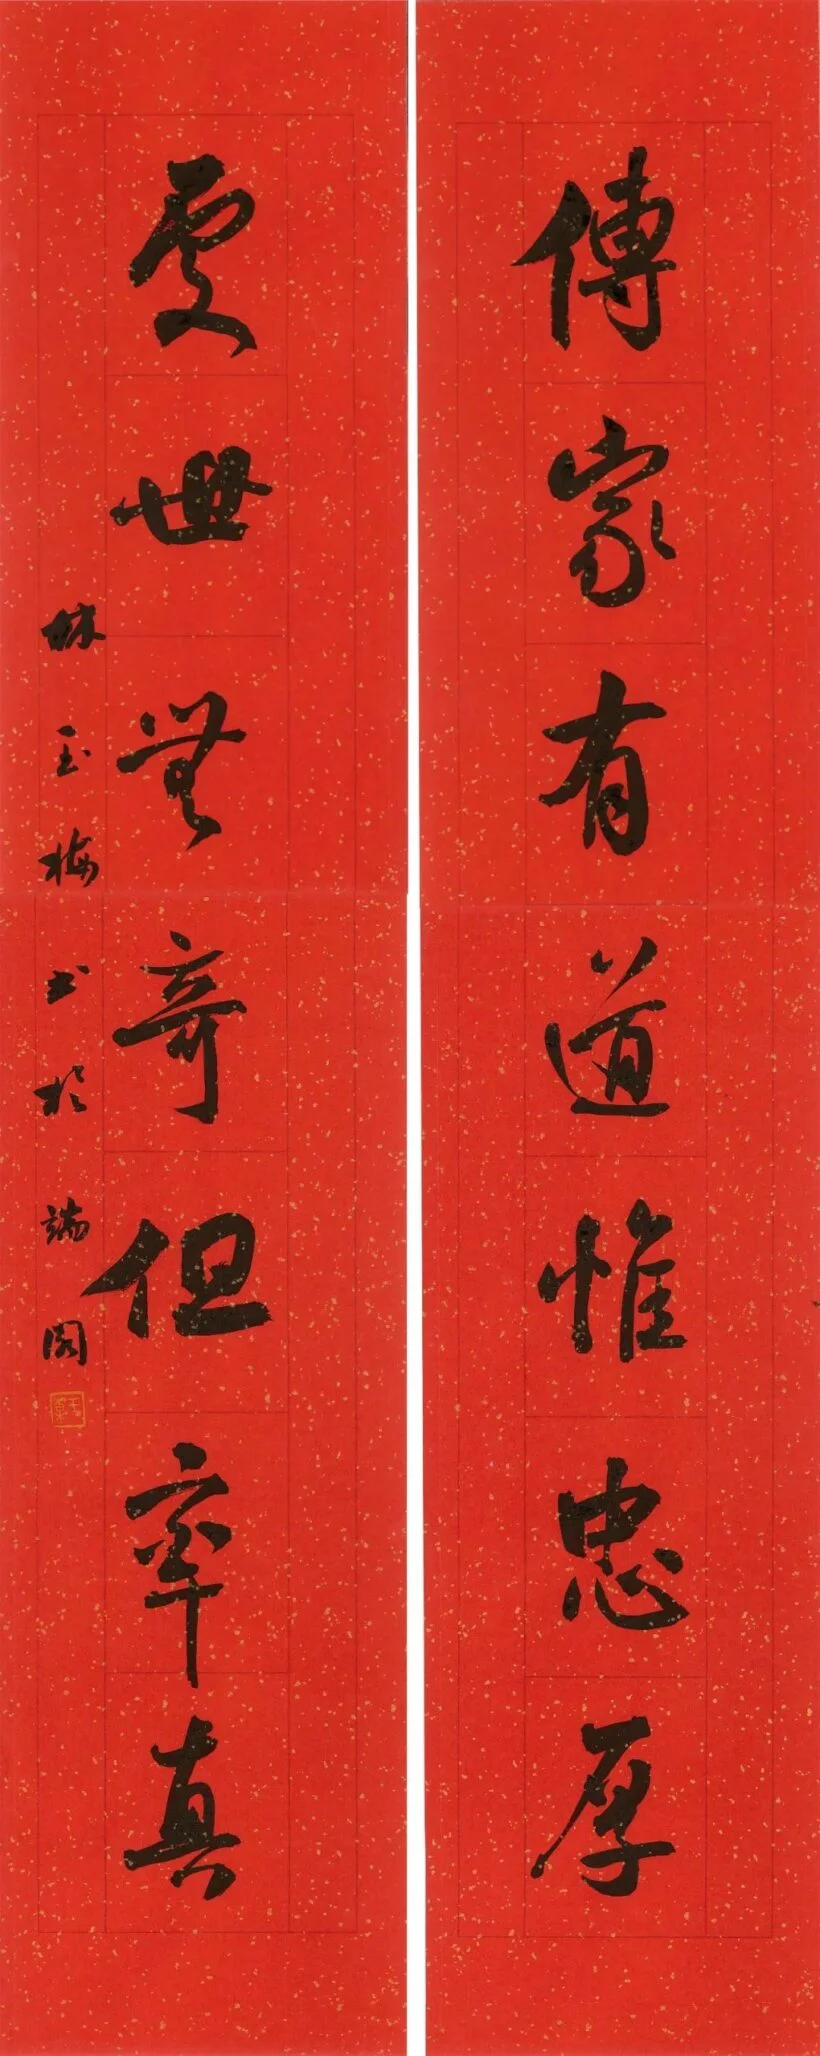 傳家有道惟忠厚
處世無奇但率真
林玉梅書於端圖